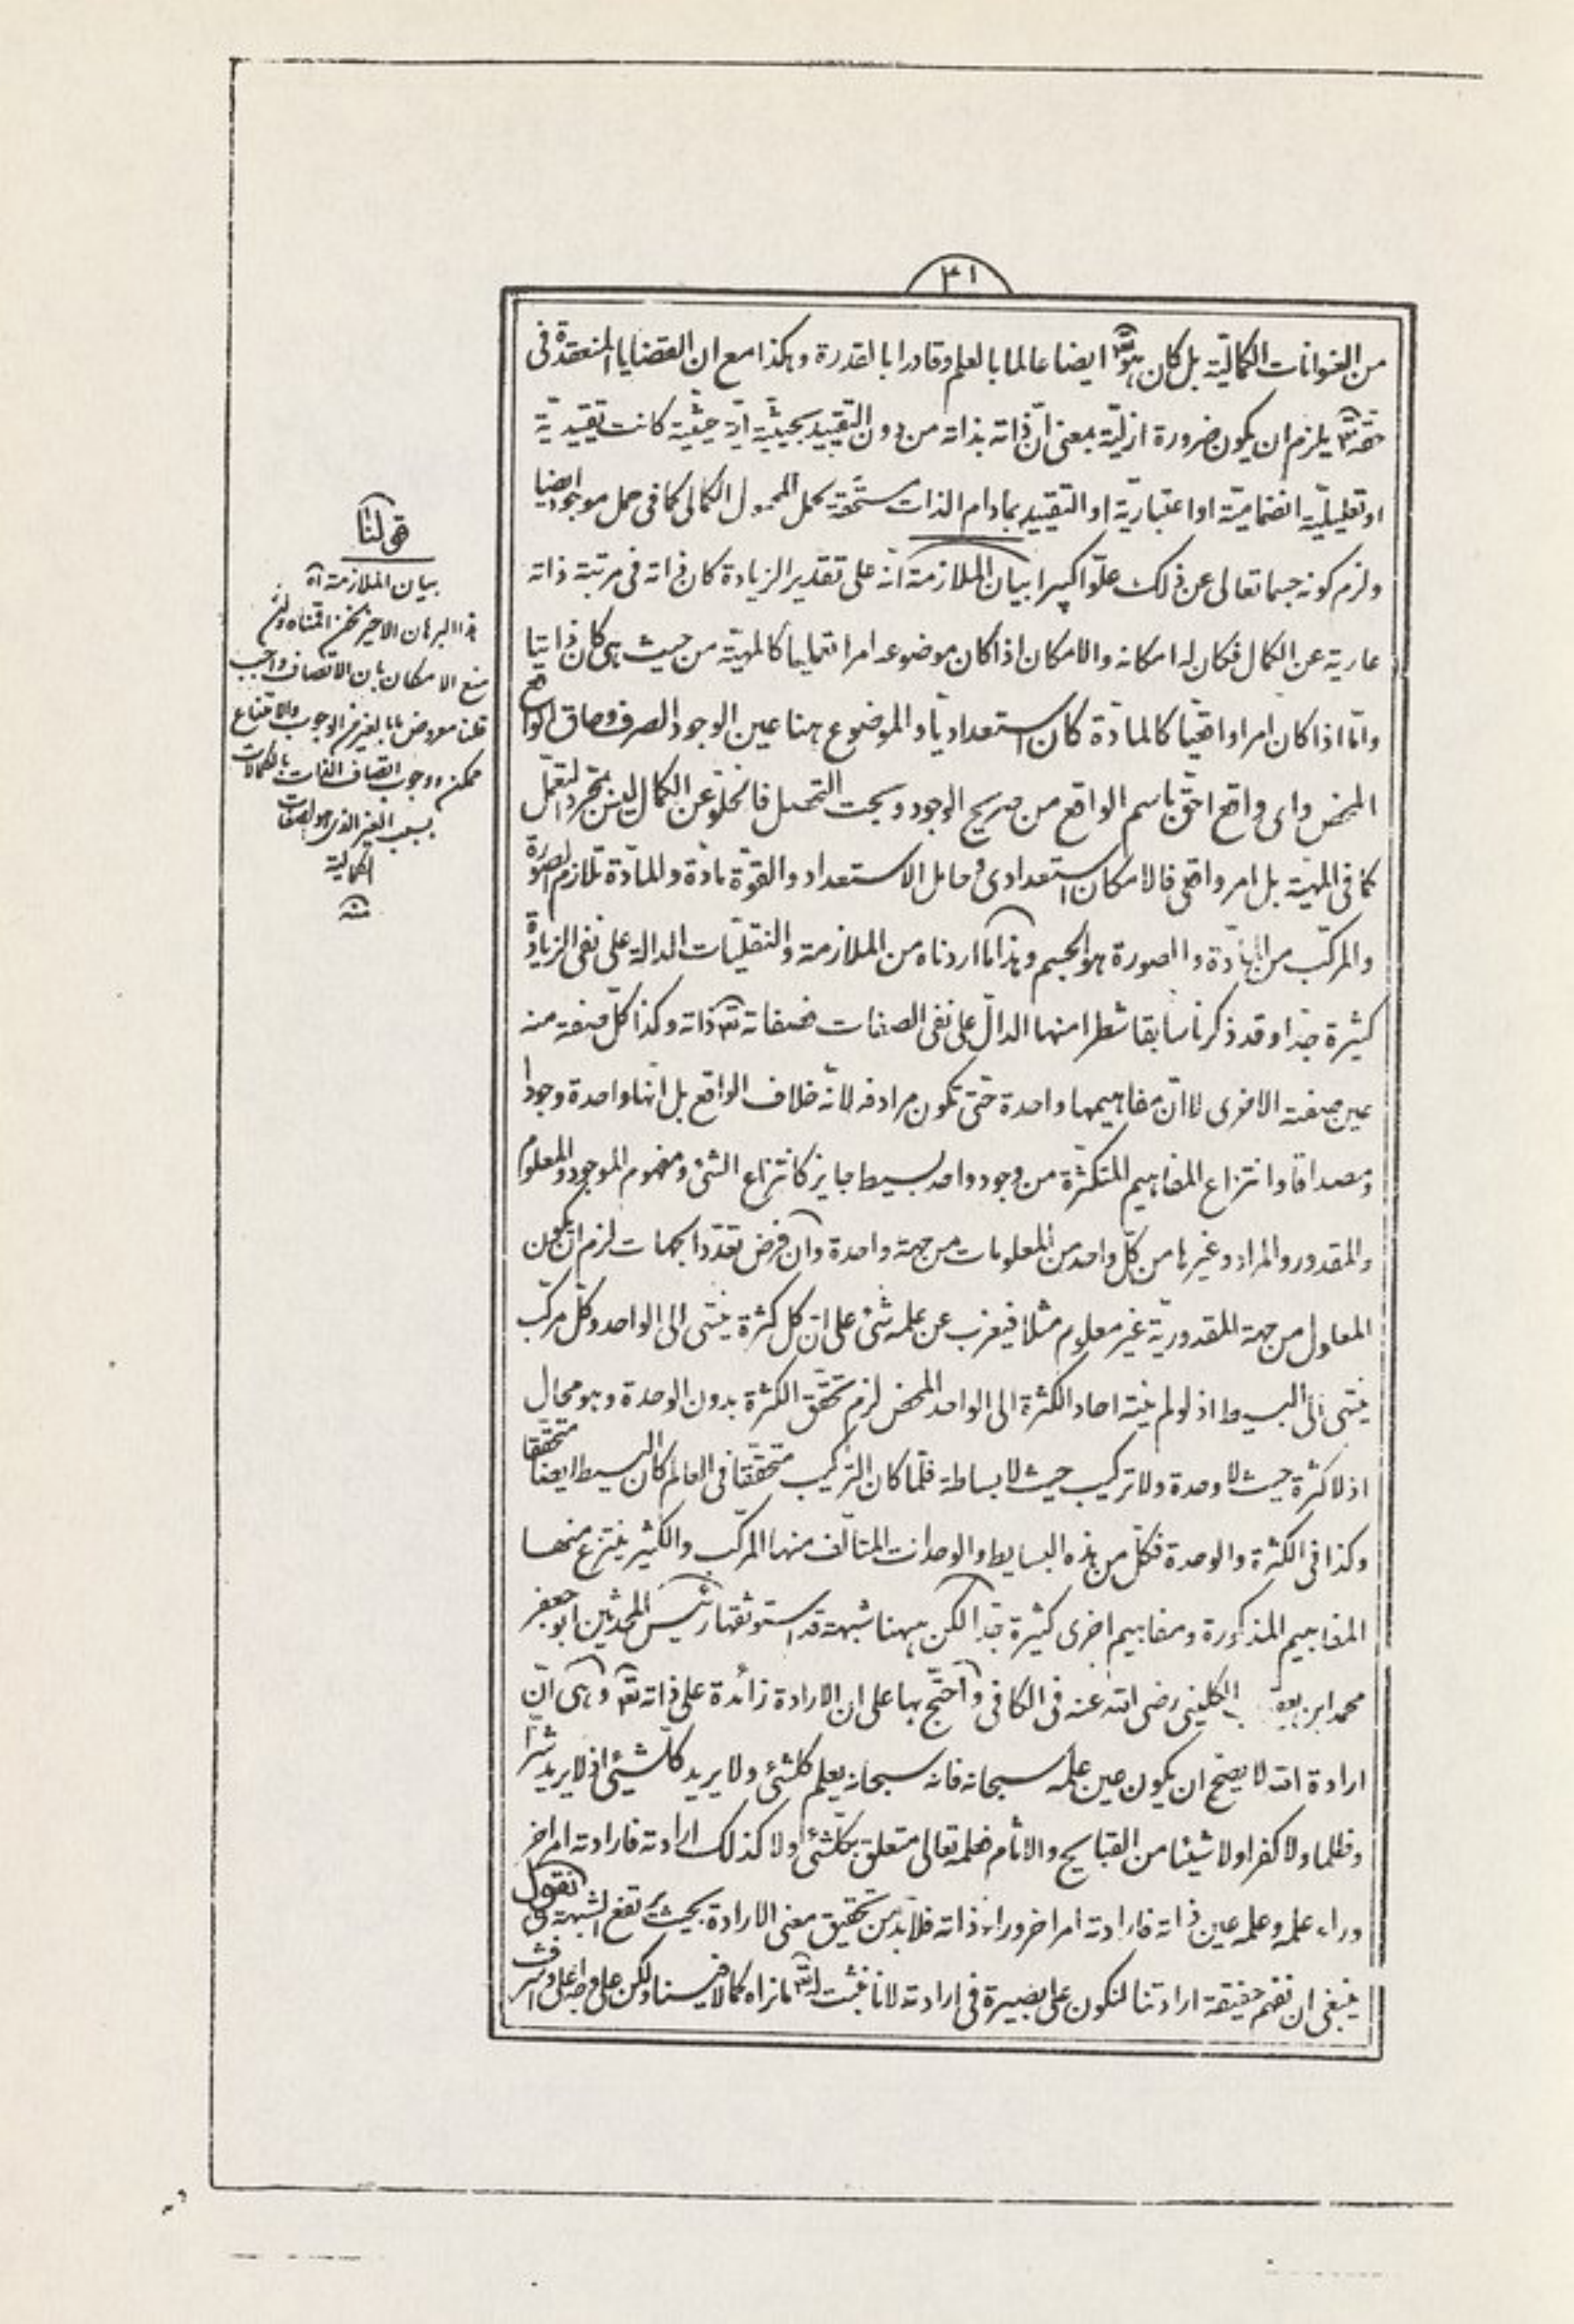 ٣١
من العنوانات الكماليّة بل كان هو تعالى ايضا عالما بالعلم وقادرا بالقدرة وهكذا مع ان القضايا المنعقدة فى
حقه تعالى يلزم ان يكون ضرورة ازليّة بمعنى انّ ذاته بذاته من دون التّقييد بحيثيّة ايّة حيثيّة كانت تقييديّة
او تعليليّة انضماميّة او اعتباريّة او التّقييد بمادام الذات مستحّقة لحمل المحمول الكمالى كما فى حمل موجود ايضا
ولزم كونه جسما تعالى عن ذلك علوّا كبيرا بيان الملازمة انّه على تقدير الزيادة كان ذاته فى مرتبة ذاته
عارية عن الكمال فكان له امكانه والامكان اذا كان موضوعه امرا تحليليا كالمهيّة من حيث هى كان ذاتيا
وامّا اذا كان امرا واقعيّا كالمادّة كان استعداديّا والموضوع هنا عين الوجود الصرف وحاق الواقع
المحض واى واقع احقّ باسم الواقع من صريح الوجود وبحت التحصل فالخلوّ عن الكمال ليس بمجرد التعمّل
كما فى المهيّة بل امر واقعى فالامكان استعدادى وحامل الاستعداد والقوّة مادّة والمادّة تلازم الصورة
والمركّب من المادّة والصورة هو الجسم وهذا ما اردناه من الملازمة والنقليّات الدالة على نفى الزيادة
كثيرة جدّا وقد ذكرنا سابقا شطرا منها الدالّ على نفى الصفات فصفاته تعالى ذاته وكذا كلّ صفة منه
عين صفته الاخرى لا انّ مفاهيمها واحدة حتّى تكون مرادفه لانّه خلاف الواقع بل انّها واحدة وجودا
ومصداقا وانتزاع المفاهيم المتكثّرة من وجود واحد بسيط جايز كانتزاع الشئ ومفهوم الموجود والمعلوم
والمقدور والمراد وغيرها من كلّ واحد من المعلومات من جهة واحدة وان فرض تعدّد الجهات لزم ان يكون
المعلول من جهة المقدوريّة غير معلوم مثلا فيعزب عن علمه شئ على انّ كل كثرة ينتهى الى الواحد وكلّ مركّب
ينتهى الى البسيط اذ لو لم ينته احاد الكثرة الى الواحد المحض لزم تحقّق الكثرة بدون الوحدة وهو محال
اذ لا كثرة حيث لا وحدة ولا تركيب حيث لا بساطة فلمّا كان التركيب متحقّقا فى العالم كان البسيط ايضا متحقّقا
وكذا فى الكثرة والوحدة فكلّ من هذه البسايط والوحدات المتالّف منها المركّب والكثير ينتزع منها
المفاهيم المذكورة ومفاهيم اخرى كثيرة جدّا لكن ههنا شبهة قد استوثقها رئيس المحدثين ابو جعفر
محمد ابن يعقوب الكلينى رضى الله عنه فى الكافى واحتّج بها على ان الارادة زائدة على ذاته تعالى وهى انّ
ارادة الله لا يصّح ان يكون عين علمه سبحانه فانه سبحانه يعلم كلشئ ولا يريد كلّشيئ اذ لا يريد شرّا
وظلما ولا كفرا ولا شيئا من القبايح والاثام فعلمه تعالى متعلق بكلّشئ ولا كذلك ارادته فارادته امر اخر
وراء علمه وعلمه عين ذاته فارادته امر اخر وراء ذاته فلابدّ من تحقيق معنى الارادة بحيث يرتفع الشبهة فنقول
ينبغى ان نفهم حقيقة ارادتنا لنكون على بصيرة فى ارادته لانا نثبت له تعالى ما نراه كمالا فينا ولكن على وجه اعلى واشرف
قولنا
بيان الملازمة اه
هذا البرهان الاخير نحن اقمناه ولئن
منع الامكان بان الاتصاف واجب
قلنا معروض ما بالغير من الوجوب والامتناع
ممكن ووجوب اتصاف الذات بالكمالات
بسبب الغير الذى هو الصفات
الكمالية
منه